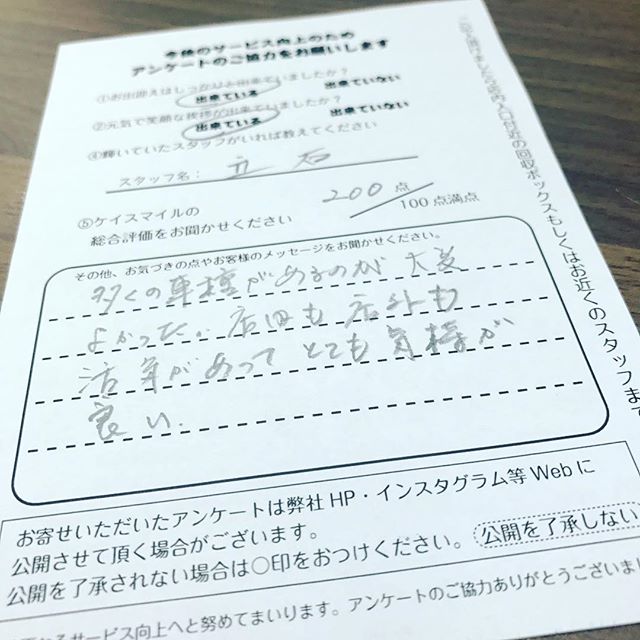 今後のサービス向上のため
アンケートのご協力をお願いします
①お出迎えはしっかりと出来ていましたか？
出来ている 出来ていない
②元気で笑顔な挨拶が出来ていましたか？
出来ている 出来ていない
④輝いていたスタッフがいれば教えてください
スタッフ名： 立石
⑤ケイスマイルの
総合評価をお聞かせください
200点／100点満点
その他、お気づきの点やお客様のメッセージをお聞かせください。
多くの車種があるのが大変
よかった。店内も店外も
活気があってとても気持が
良い.
お寄せいただいたアンケートは弊社HP・インスタグラム等Webに
公開させて頂く場合がございます。
公開を了承されない場合は○印をおつけください。 公開を了承しない
サービス向上へと努めてまいります。アンケートのご協力ありがとうございまし
の回収ボックスもしくはお近くのスタッフまで